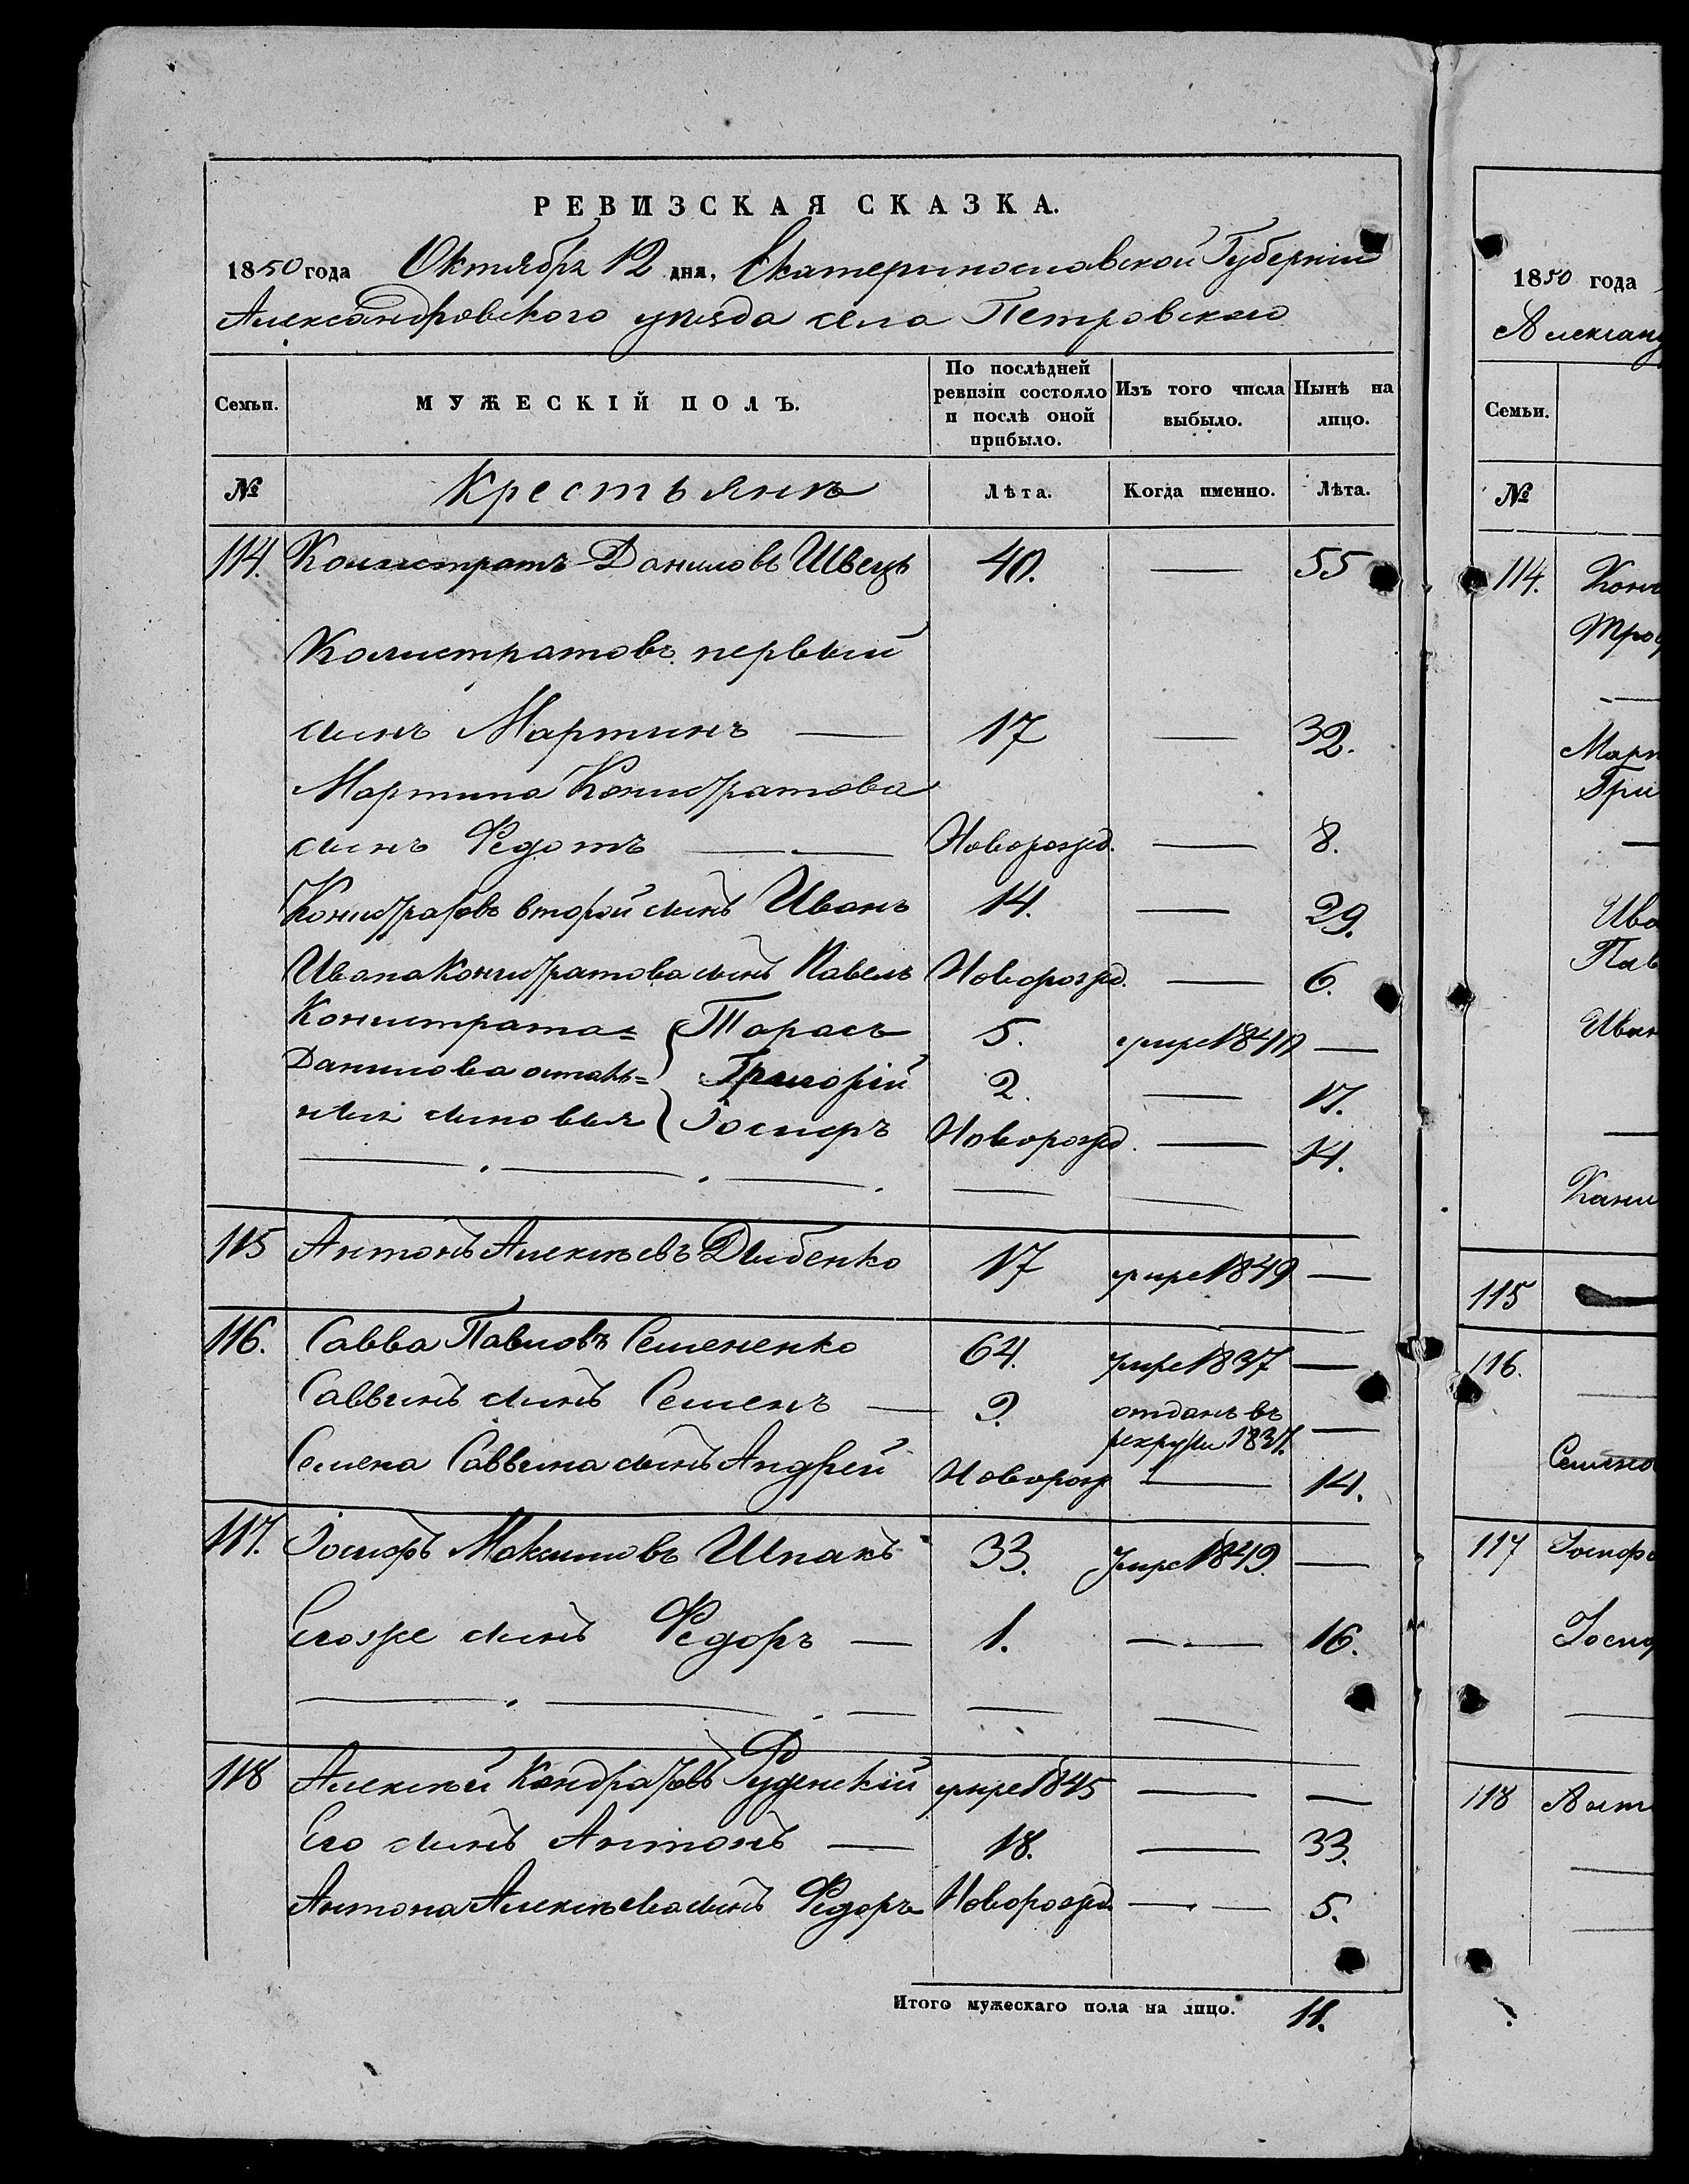 РЕВИЗСКАЯ СКАЗКА.
1850 года Октября 12 дня, Екатеринославской Губернии
Александровского уѣзда села Петровского
Семьи. МУЖЕСКІЙ ПОЛЪ. По послѣдней ревизіи состояло и послѣ оной прибыло. Изъ того числа выбыло. Нынѣ на лицо.
№ Крестьянъ Лѣта. Когда именно. Лѣта.
114. Калистратъ Даниловъ Швецъ 40. — 55
Калистратовъ первый
сынъ Мартинъ — 17 — 32.
Мартина Конистратова
сынъ Федотъ — Новорожд. — 8.
Конистратовъ второй сынъ Иванъ 14. — 29.
Ивана Конистратова сынъ Павелъ Новорожд. — 6.
Конистрата= Тарасъ 5. умре 1840 —
Данилова осталь= Григорій 2. — 17.
ные сыновья Іосифъ Новорожд. — 14.
115 Антонъ Алексѣевъ Дыбенко 17 умре 1849 —
116. Савва Павловъ Семененко 64. умре 1837 —
Саввинъ сынъ Семенъ — 9. отданъ въ рекруты 1837. —
Семена Саввина сынъ Андрей Новорож — 14.
117. Іосифъ Максимовъ Шпакъ 33. умре 1849. —
Егоже сынъ Федоръ — 1. — 16.
118 Алексѣй Кондратовъ Руденскій умре 1845 — —
Его сынъ Антонъ — 18. — 33.
Антона Алексѣева сынъ Федоръ Новорожд. — 5.
Итого мужескаго пола на лицо. 11.
1850 года
Александ
Семьи.
№
114. Кони
Троф
Март
Гри
Ива
Пав
Иван
Кани
115
116.
Семено
117 Іосифо
Іосиф
118 Ант